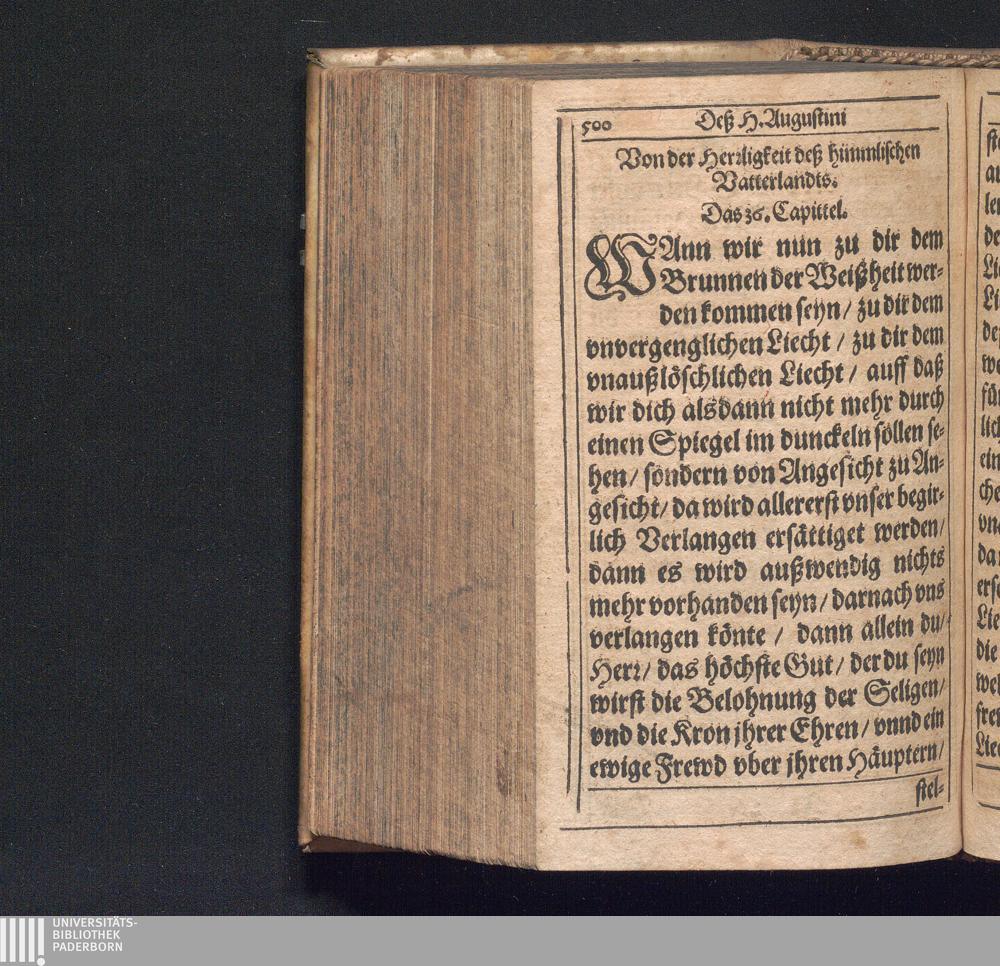 500 Deß H. Augustini
Von der Herꝛligkeit deß himmlischen
Vatterlandts.
Das 36. Capittel.
WAnn wir nun zu dir dem
Brunnen der Weißheit wer-
den kommen seyn / zu dir dem
vnvergenglichen Liecht / zu dir dem
vnaußlöschlichen Liecht / auff daß
wir dich alsdann nicht mehr durch
einen Spiegel im dunckeln sollen se-
hen / sondern von Angesicht zu An-
gesicht / da wird allererst vnser begir-
lich Verlangen ersättiget werden /
dann es wird außwendig nichts
mehr vorhanden seyn / darnach vns
verlangen könte / dann allein du /
Herꝛ / das höchste Gut / der du seyn
wirst die Belohnung der Seligen /
vnd die Kron jhrer Ehren / vnnd ein
ewige Frewd vber jhren Häuptern /
stel-
UNIVERSITÄTS-
BIBLIOTHEK
PADERBORN